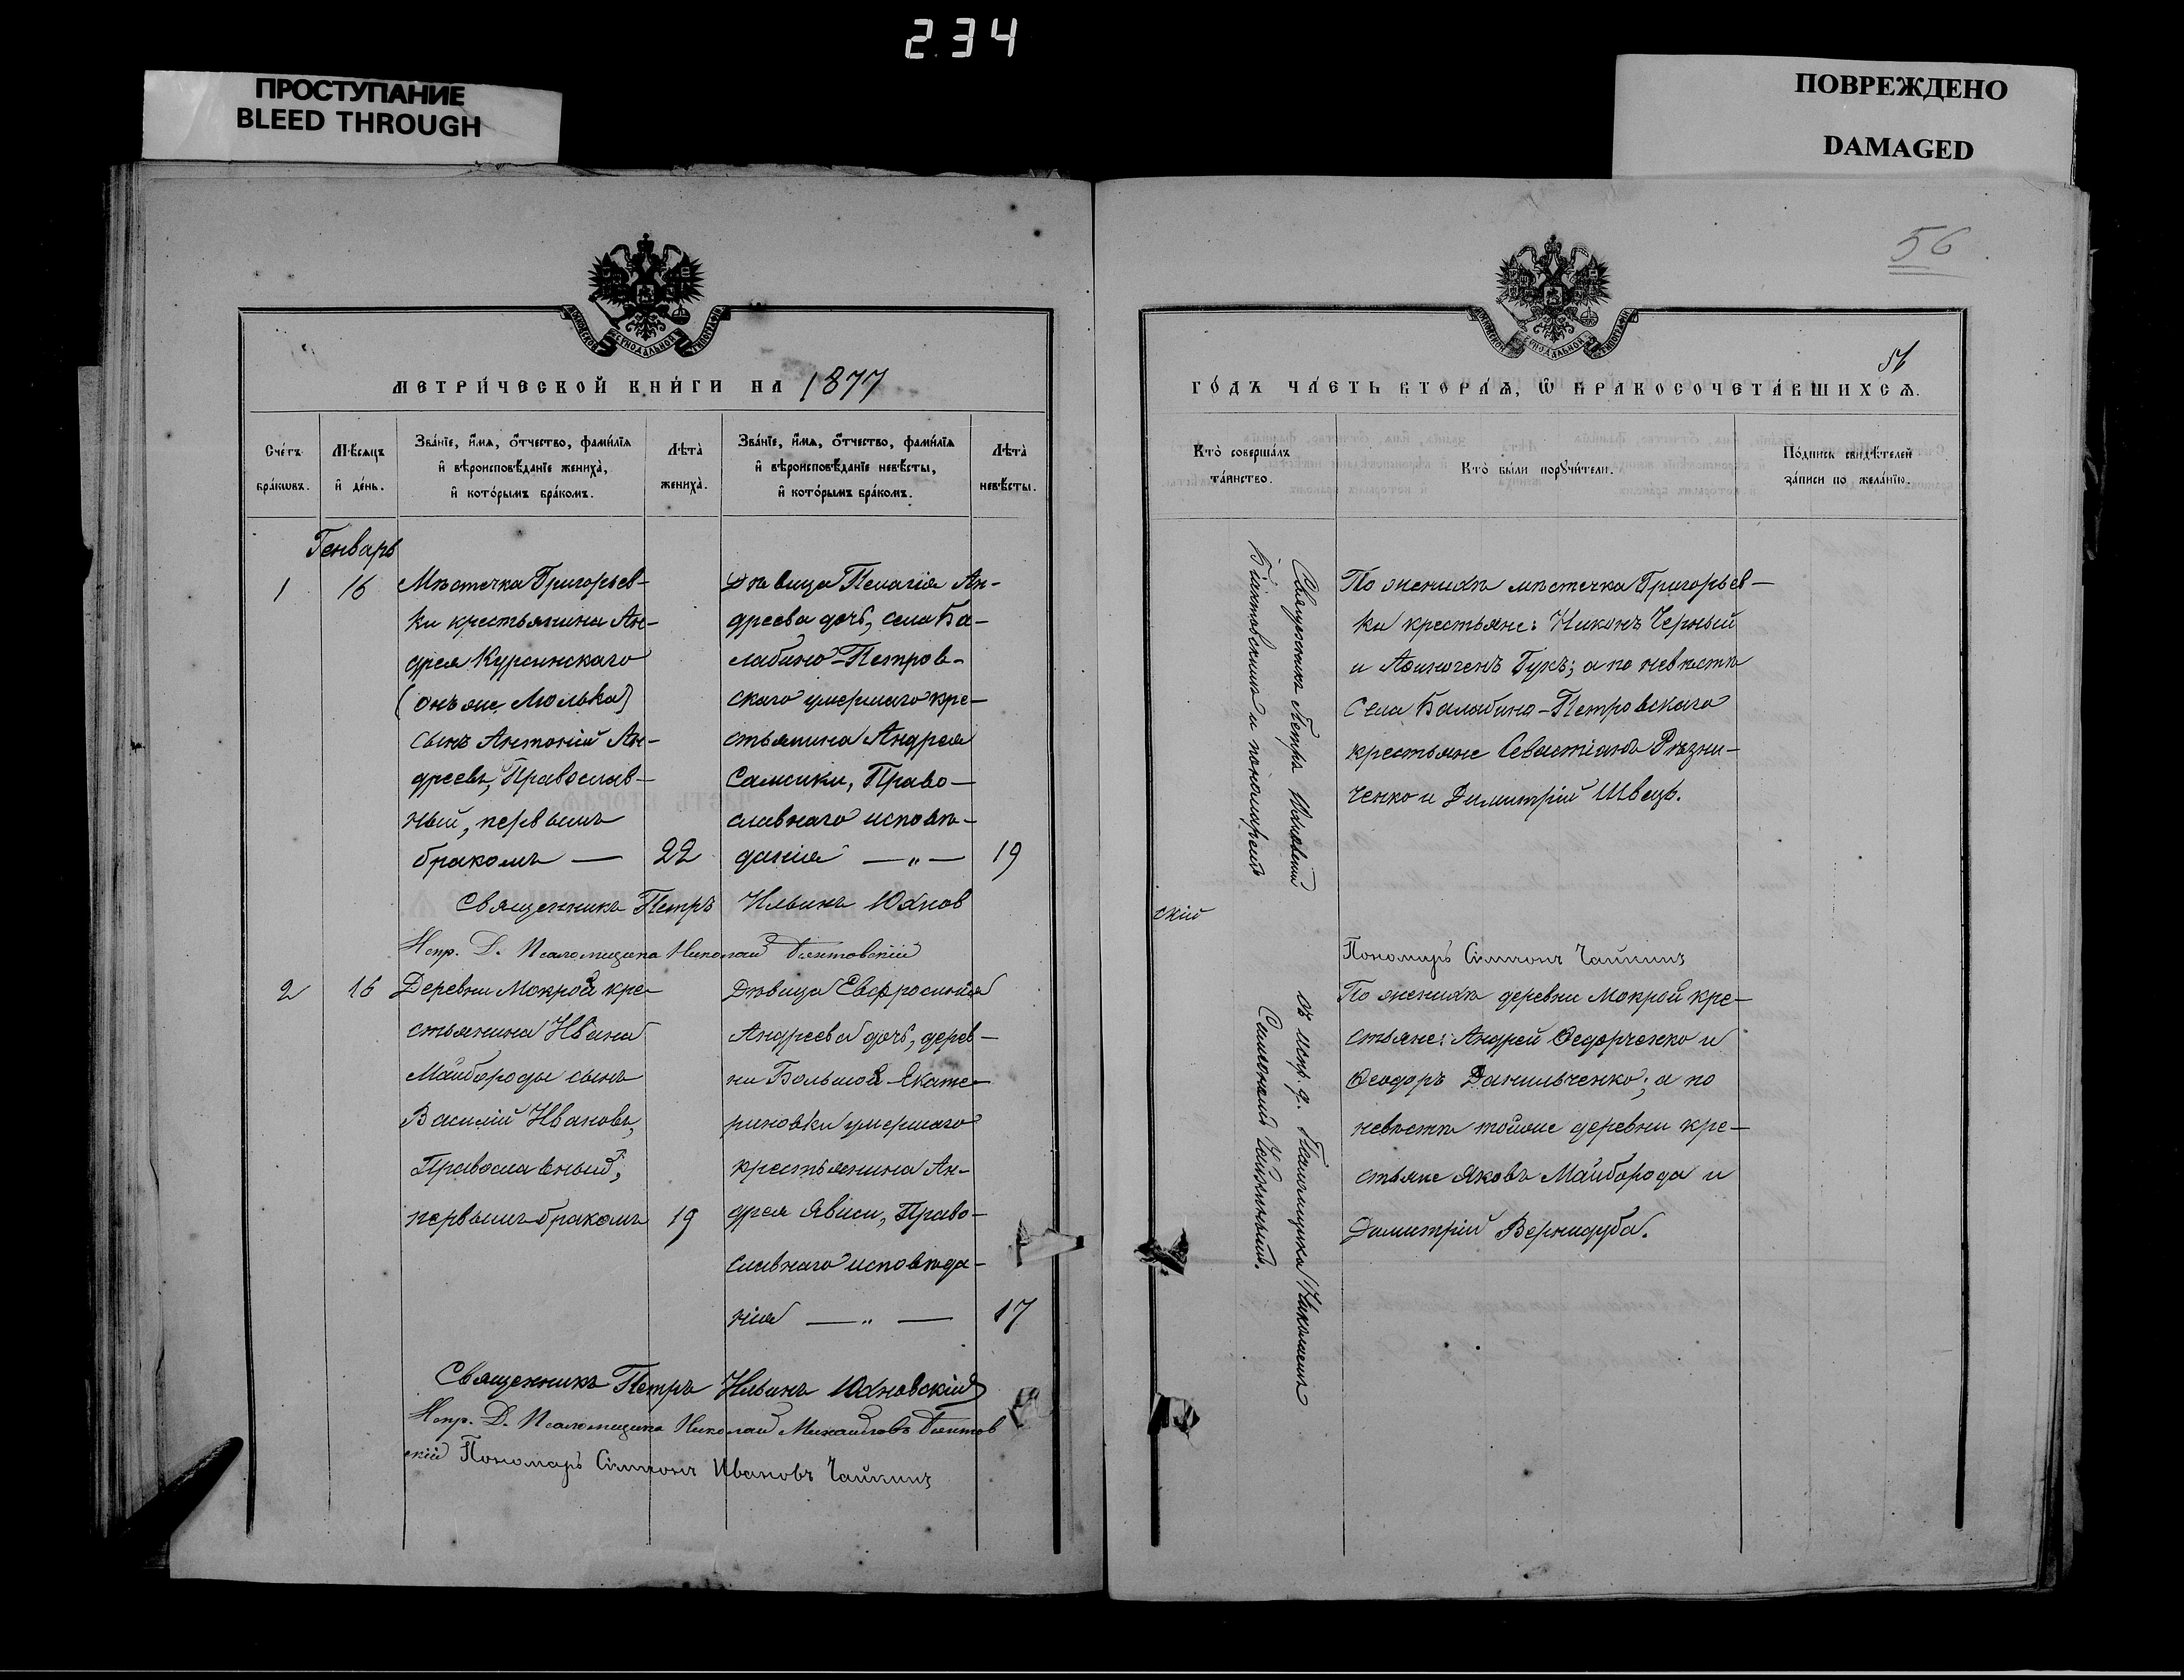 234
ПРОСТУПАНИЕ
BLEED THROUGH
ПОВРЕЖДЕНО
DAMAGED
56
МЕТРИ́ЧЕСКОЙ КНИ́ГИ НА 1877
Сче́тъ бра́кωвъ.
Мѣ́сяцъ и҆ де́нь.
Зва́нїе, и҆́мя, ѻ҆́тчество, фами́лїя
и҆ вѣроисповѣ́данїе жениха̀,
и҆ кото́рымъ бра́комъ.
Лѣта̀ жениха̀.
Зва́нїе, и҆́мя, ѻ҆́тчество, фами́лїя
и҆ вѣроисповѣ́данїе невѣ́сты,
и҆ кото́рымъ бра́комъ.
Лѣта̀ невѣ́сты.
Генварь
1
16
Мѣстечка Григорьев-
ки крестьянина Ан-
дрея Курсинскаго
(онъ же Люлька)
сынъ Антоній Ан-
дреевъ, Православ-
ный, первымъ
бракомъ —
22
Дѣвица Пелагія Ан-
дреева дочь, села Ба-
лабино-Петров-
скаго умершаго кре-
стьянина Андрея
Самсики, Право-
славнаго исповѣ-
данія — „ —
19
Священникъ Петръ Ильинъ Юхнов
Испр. Д. Псаломщика Николай
2
16
Деревни Мокрой кре-
стьянина Ивана
Майбороды сынъ
Василій Ивановъ,
Православный,
первымъ бракомъ
19
Дѣвица Евфросинія
Андреева дочь, дерев-
ни Большой Екате-
риновки умершаго
крестьянина Ан-
дрея Явиси, Право-
славнаго исповѣда-
нія — „ —
17
Священникъ Петръ Ильинъ Юхновскій
Испр. Д. Псаломщика Николай Михайловъ
скій Пономарь Симеонъ Ивановъ Чайкинъ
ГО́ДЪ ЧА́СТЬ ВТОРА́Ѧ, Ѽ БРАКОСОЧЕТА́ВШИХСѦ.
Кто̀ соверша́лъ
та́инство.
Кто̀ бы́ли порꙋчи́тели.
По́дпись свидѣ́телей
за́писи по жела́нїю.
Священникъ Петръ
и пономаремъ
съ испр. д. Псаломщика Николаемъ
По женихѣ мѣстечка Григорьев-
ки крестьяне: Никонъ Черный
и Гукъ; а по невѣстѣ
Села Балабино-Петровскаго
крестьяне Севастіанъ Рѣзни-
ченко и Димитрій Швецъ.
скій
Пономарь Симеонъ Чайкинъ
По женихѣ деревни Мокрой кре-
стьяне: Андрей Ѳедорченко и
Ѳеодоръ Данильченко; а по
невѣстѣ тойже деревни кре-
стьяне Яковъ Майборода и
Димитрій Вернидуба.